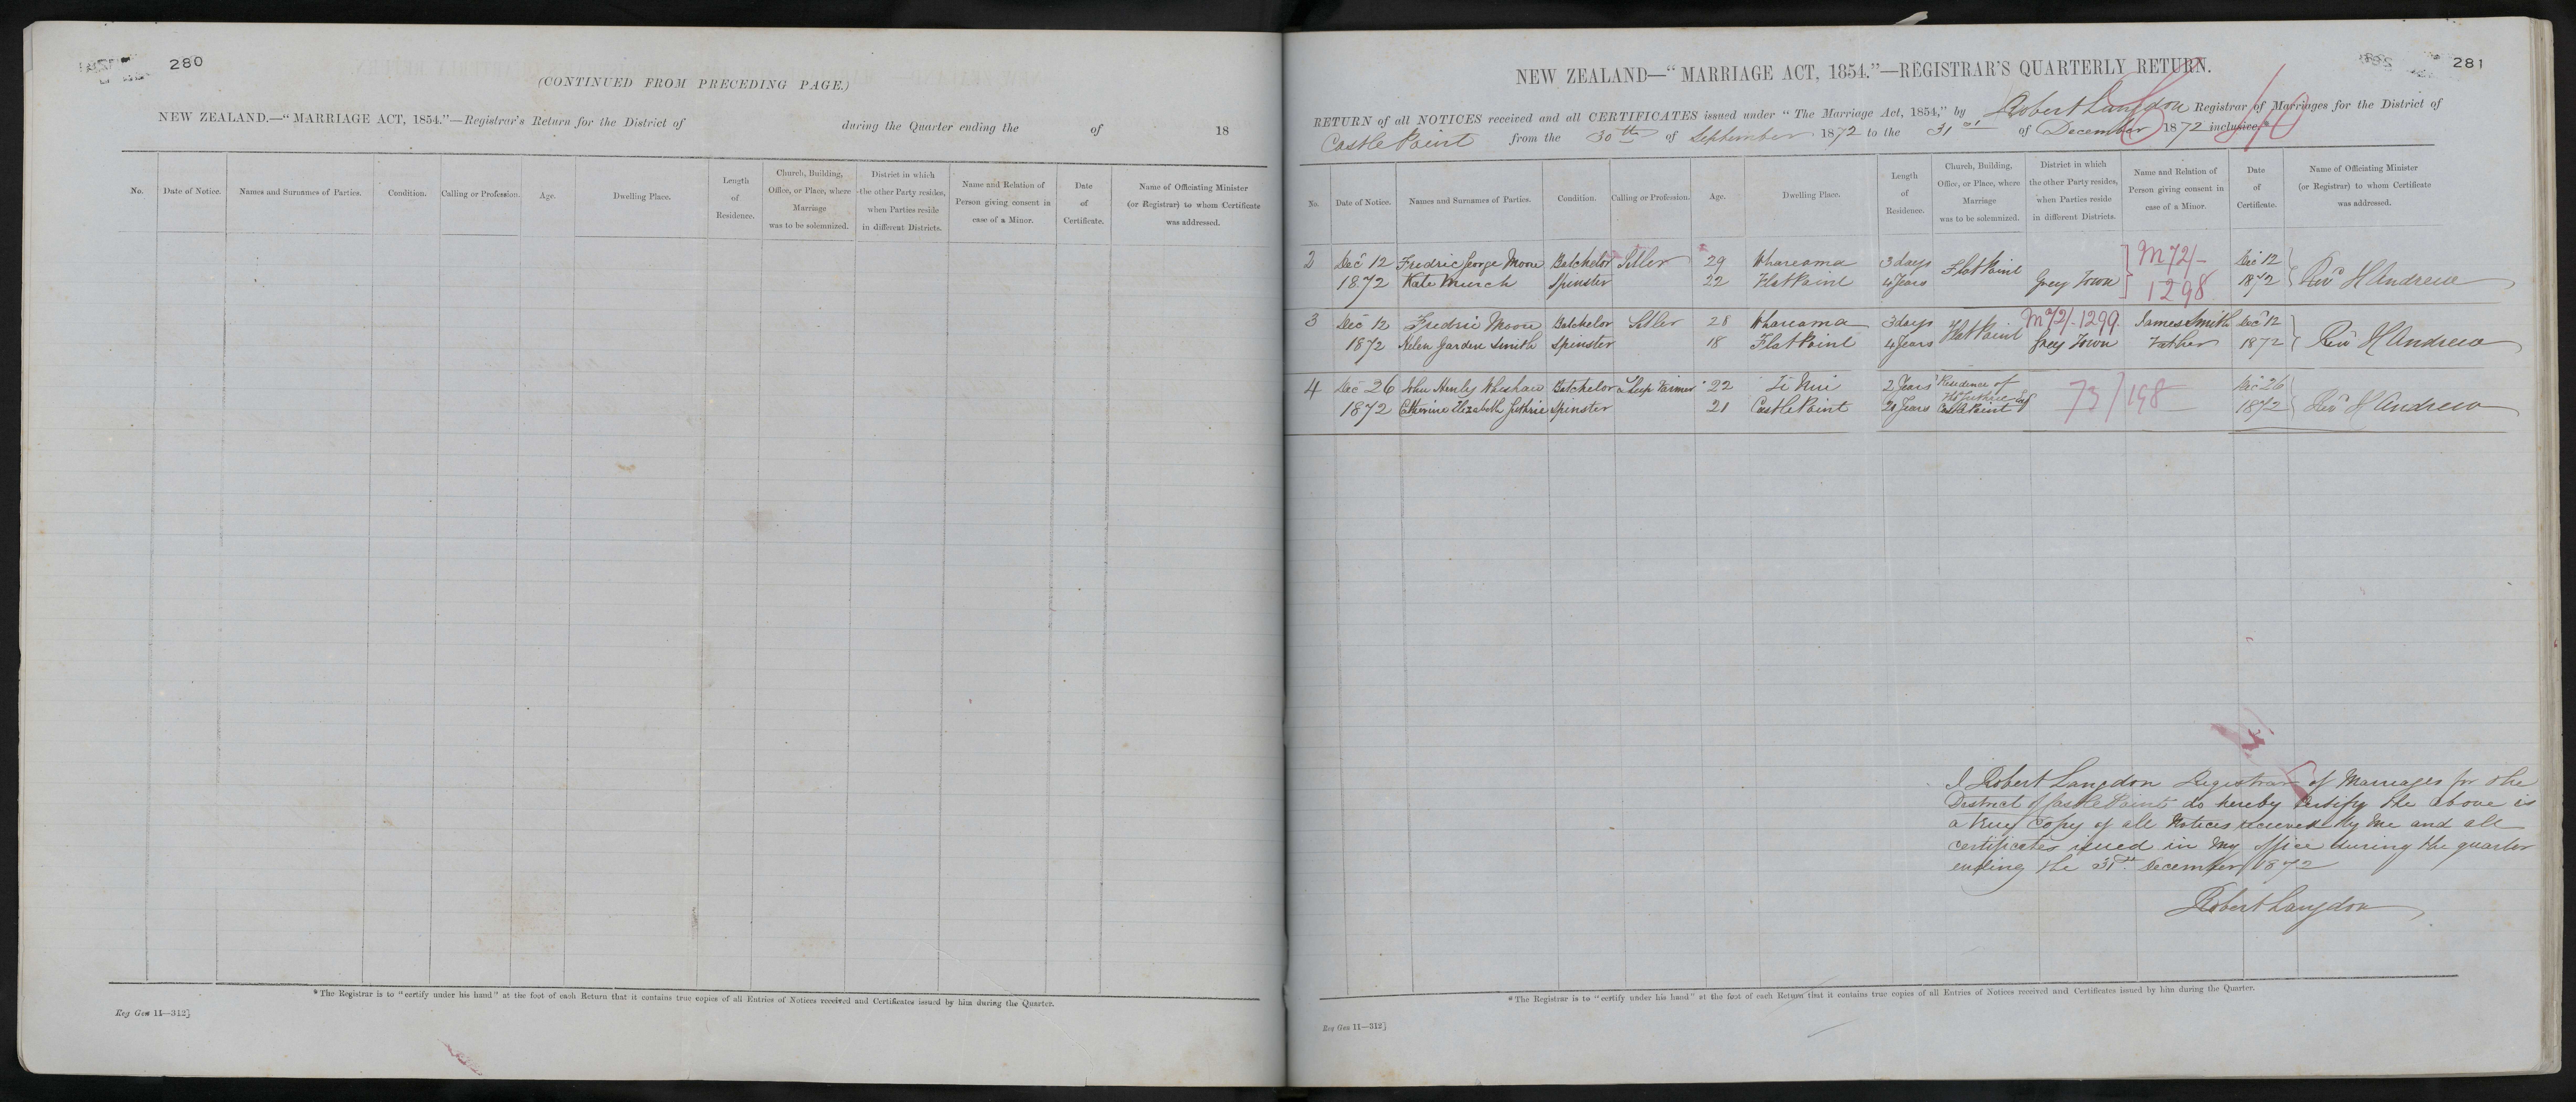 280
(CONTINUED FROM PRECEDING PAGE.)
NEW ZEALAND.—"MARRIAGE ACT, 1854."—Registrar's Return for the District of during the Quarter ending the of 18
No. Date of Notice. Names and Surnames of Parties. Condition. Calling or Profession. Age. Dwelling Place. Length of Residence. Church, Building, Office, or Place, where Marriage was to be solemnized. District in which the other Party resides, when Parties reside in different Districts. Name and Relation of Person giving consent in case of a Minor. Date of Certificate. Name of Officiating Minister (or Registrar) to whom Certificate was addressed.
*The Registrar is to "certify under his hand" at the foot of each Return that it contains true copies of all Entries of Notices received and Certificates issued by him during the Quarter.
Reg Gen 11—312]
281
NEW ZEALAND—"MARRIAGE ACT, 1854."—REGISTRAR'S QUARTERLY RETURN.
RETURN of all NOTICES received and all CERTIFICATES issued under "The Marriage Act, 1854," by Robert Langdon Registrar of Marriages for the District of
Castle Point from the 30th of September 1872 to the 31st of December 1872 inclusive.*
No. Date of Notice. Names and Surnames of Parties. Condition. Calling or Profession. Age. Dwelling Place. Length of Residence. Church, Building, Office, or Place, where Marriage was to be solemnized. District in which the other Party resides, when Parties reside in different Districts. Name and Relation of Person giving consent in case of a Minor. Date of Certificate. Name of Officiating Minister (or Registrar) to whom Certificate was addressed.
2 Dec 12 Fredric George Moore Batchelor Setler 29 Whareama 3 days Flat Point M72/- Dec 12 Revd H Andrew
1872 Kate Murch Spinster 22 Flat Point 4 Years Grey Town 1298 1872
3 Dec 12 Fredric Moore Batchelor Setler 28 Whareama 3 days Flat Point M72/.1299 James Smith Dec 12 Revd H Andrew
1872 Helen Garden Smith Spinster 18 Flat Point 4 Years Grey Town Father 1872
4 Dec 26 John Henly Wheshaw Batchelor Sheep Farmer 22 Ti Nui 2 Years Residence of 73/198 Dec 26 Revd H Andrew
1872 Catherine Elizabeth Guthrie Spinster 21 Castle Point 21 Years Thos Guthrie Esq Castle Point 1872
I Robert Langdon Registrar of Marriages for the
District of Castle Point do hereby certify the above is
a true copy of all Notices recieved by me and all
certificates issued in my office during the quarter
ending the 31st December 1872
Robert Langdon
*The Registrar is to "certify under his hand" at the foot of each Return that it contains true copies of all Entries of Notices received and Certificates issued by him during the Quarter.
Reg Gen 11—312]